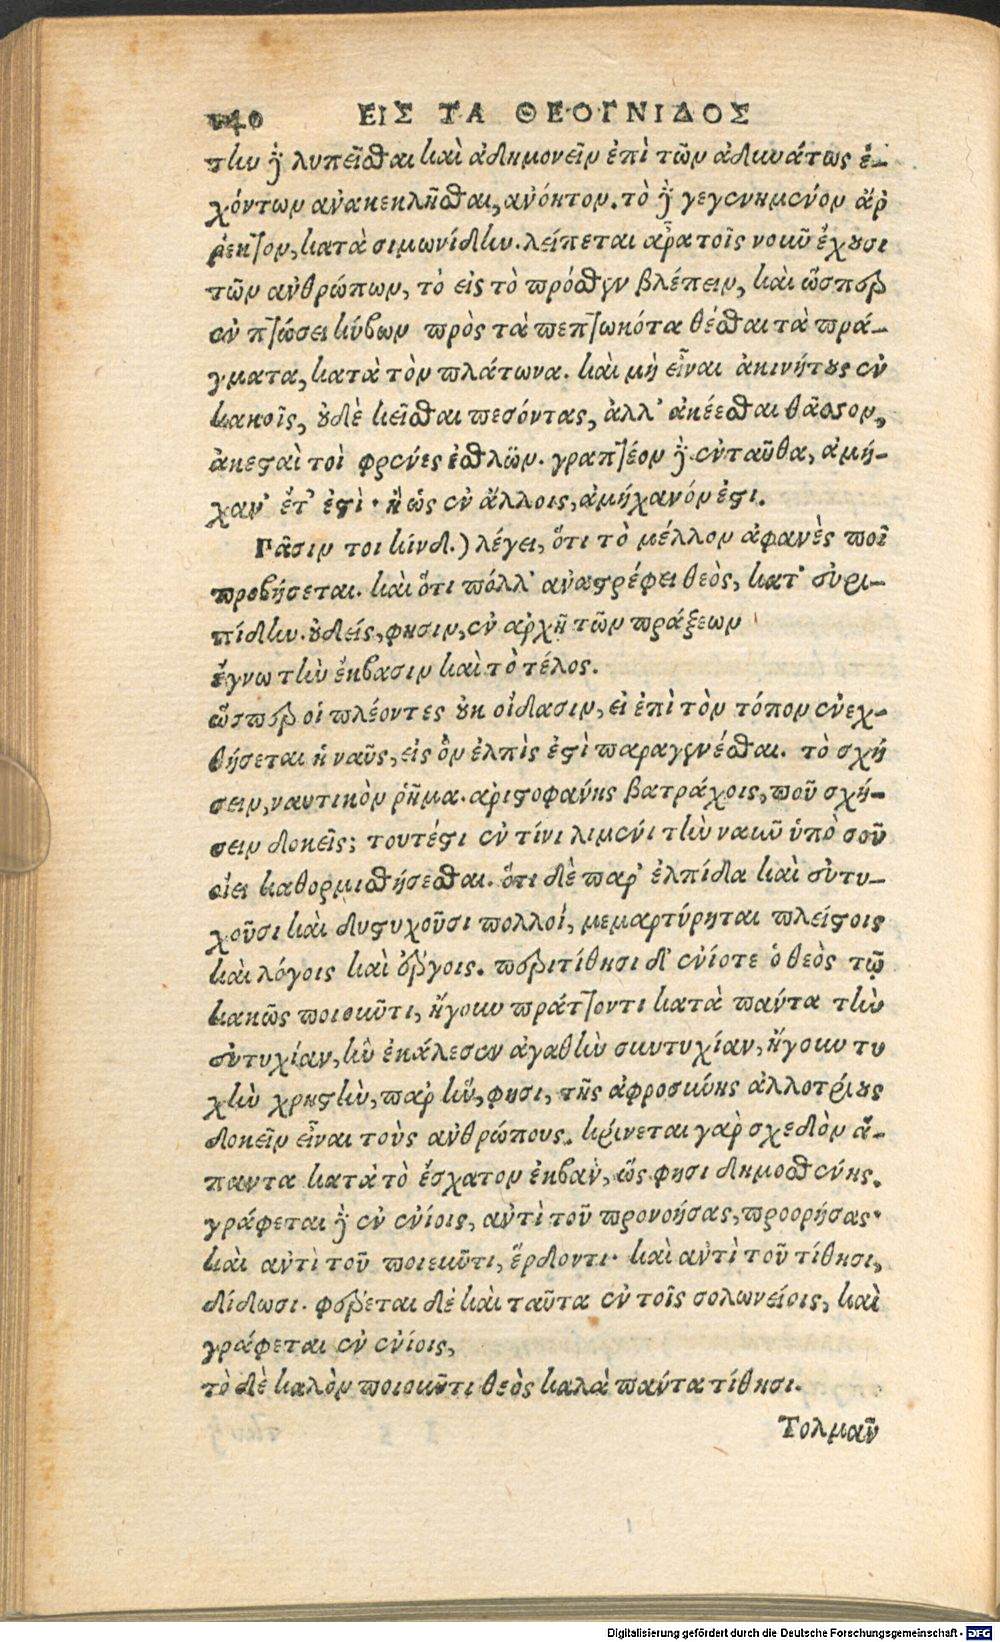 140 ΕΙΣ ΤΑ ΘΕΟΓΝΙΔΟΣ
την γὰρ λυπεῖσθαι καὶ ἀδημονεῖν ἐπὶ τῶν ἀδυνάτως ἐ-
χόντων ἀνακεκλῆσθαι, ἀνόητον. τὸ γὰρ γεγενημένον ἄρ
ρεκτον, κατὰ σιμωνίδην. λείπεται ἄρα τοῖς νοῦν ἔχουσι
τῶν ἀνθρώπων, τὸ εἰς τὸ πρόσθεν βλέπειν, καὶ ὥσπερ
ἐν πτώσει κύβων πρὸς τὰ πεπτωκότα θέσθαι τὰ πρά-
γματα, κατὰ τὸν πλάτωνα. καὶ μὴ εἶναι ἀκινήτους ἐν
κακοῖς, οὐδὲ κεῖσθαι πεσόντας, ἀλλ' ἀκέεσθαι θᾶσσον,
ἀκεσταὶ τοὶ φρένες ἐσθλῶν. γραπτέον γὰρ ἐνταῦθα, ἀμή-
χαν' ἔτ' ἐστὶ. ἢ ὡς ἐν ἄλλοις, ἀμήχανόν ἐστι.
Πᾶσιν τοι κίνδ.) λέγει, ὅτι τὸ μέλλον ἀφανὲς ποῖ
προβήσεται. καὶ ὅτι πόλλ' ἀναστρέφει θεὸς, κατ' εὐρι-
πίδην. οὐδείς, φησιν, ἐν ἀρχῇ τῶν πράξεων
ἔγνω τὴν ἔκβασιν καὶ τὸ τέλος.
ὥσπερ οἱ πλέοντες οὐκ οἴδασιν, εἰ ἐπὶ τὸν τόπον ἐνεχ-
θήσεται ἡ ναῦς, εἰς ὃν ἐλπὶς ἐστὶ παραγενέσθαι. τὸ σχή
σειν, ναυτικὸν ῥῆμα. ἀριστοφάνης βατράχοις, ποῦ σχή-
σειν δοκεῖς; τουτέστι ἐν τίνι λιμένι τὴν ναῦν ὑπὸ σοῦ
οἴει καθορμισθήσεσθαι. ὅτι δὲ παρ' ἐλπίδα καὶ εὐτυ-
χοῦσι καὶ δυστυχοῦσι πολλοί, μεμαρτύρηται πλείστοις
καὶ λόγοις καὶ ἔργοις. περιτίθησι δ' ἐνίοτε ὁ θεὸς τῷ
κακῶς ποιοῦντι, ἤγουν πράττοντι κατὰ πάντα τὴν
εὐτυχίαν, ἣν ἐκάλεσεν ἀγαθὴν συντυχίαν, ἤγουν τυ
χὴν χρηστὴν, παρ' ἣν, φησι, τῆς ἀφροσύνης ἀλλοτρίους
δοκεῖν εἶναι τοὺς ἀνθρώπους. κρίνεται γὰρ σχεδὸν ἅ-
παντα κατὰ τὸ ἔσχατον ἐκβὰν, ὥς φησι δημοσθένης.
γράφεται γὰρ ἐν ἐνίοις, ἀντὶ τοῦ προνοήσας, προορήσας·
καὶ ἀντὶ τοῦ ποιεῦντι, ἔρδοντι· καὶ ἀντὶ τοῦ τίθησι,
δίδωσι. φέρεται δὲ καὶ ταῦτα ἐν τοῖς σολωνείοις, καὶ
γράφεται ἐν ἐνίοις,
τὸ δὲ καλὸν ποιοῦντι θεὸς καλὰ πάντα τίθησι.
Τολμᾶν
Digitalisierung gefördert durch die Deutsche Forschungsgemeinschaft - DFG